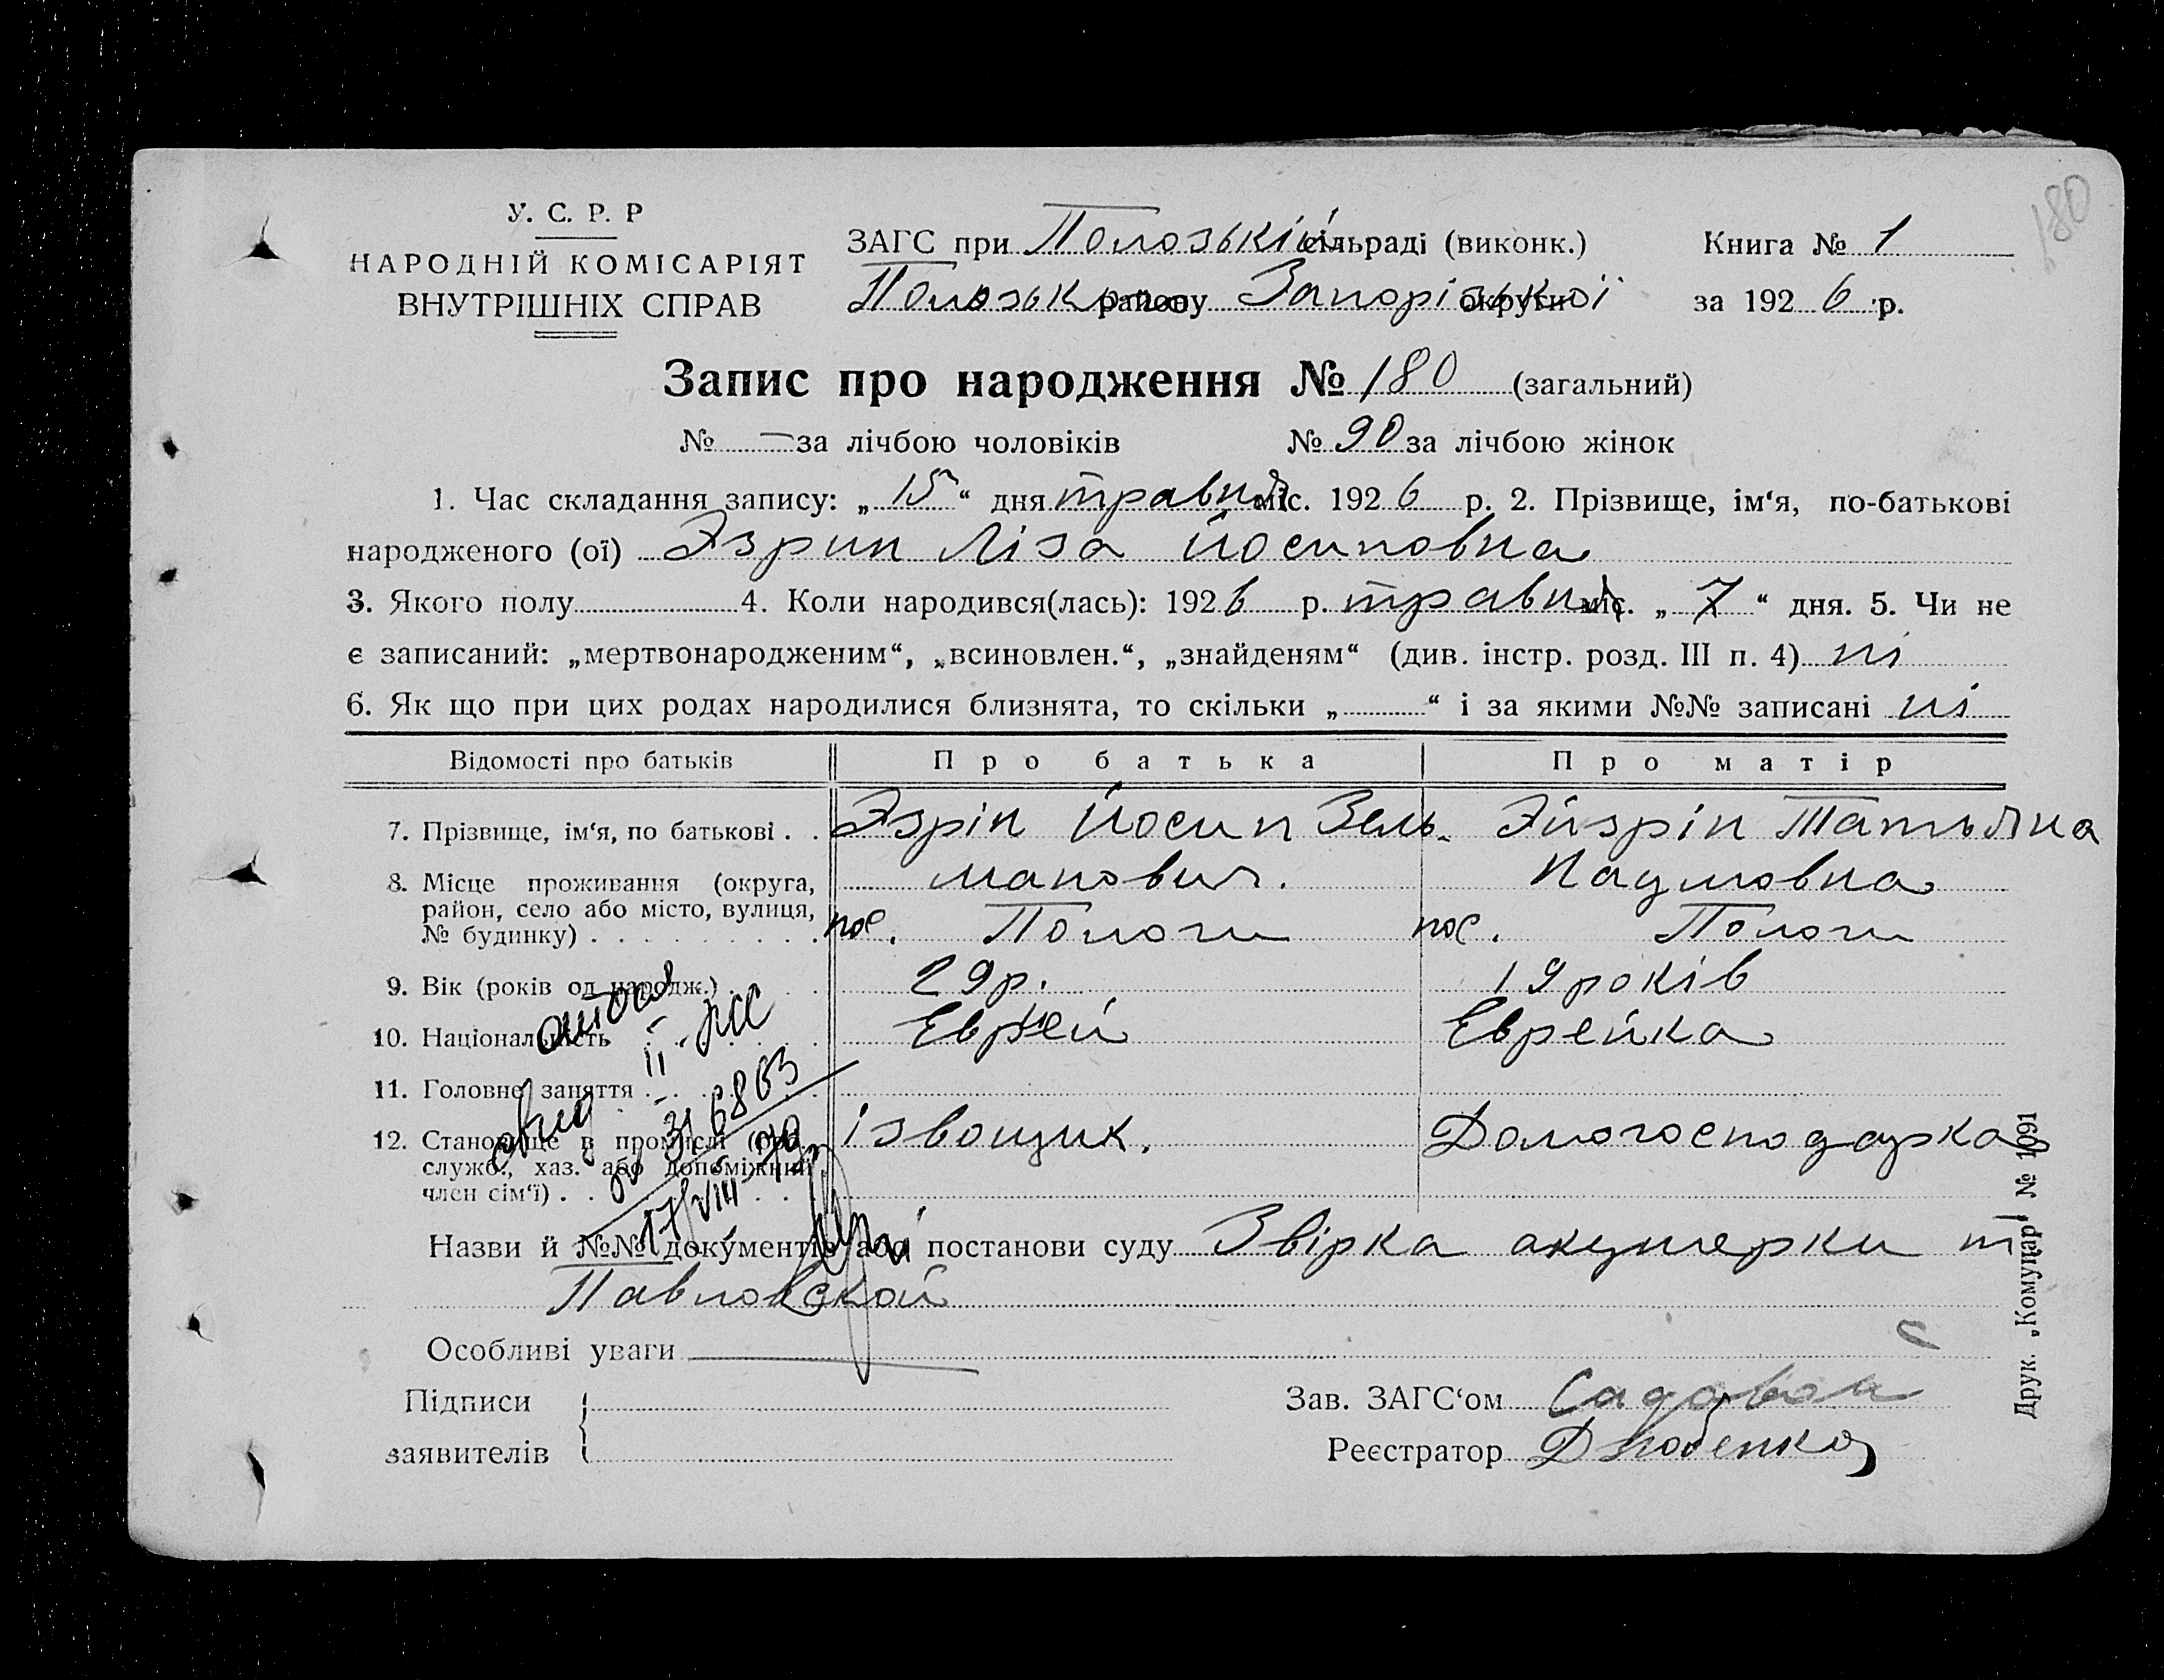 180
У. С. Р. Р
НАРОДНІЙ КОМІСАРІЯТ
ВНУТРІШНІХ СПРАВ
ЗАГС при Пологській сільраді (виконк.) Книга № 1
району Запорізької округи за 1926 р.
Запис про народження № 180 (загальний)
№ — за лічбою чоловіків № 90 за лічбою жінок
1. Час складання запису: „15“ дня травня міс. 1926 р. 2. Прізвище, ім‘я, по-батькові
народженого (ої) Эзрин Ліза Йосиповна
3. Якого полу 4. Коли народився(лась): 1926 р. травня міс. „7“ дня. 5. Чи не
є записаний: „мертвонародженим“, „всиновлен.“, „знайденям“ (див. інстр. розд. III п. 4) ні
6. Як що при цих родах народилися близнята, то скільки „ “ і за якими №№ записані ні
Відомості про батьків Про батька Про матір
7. Прізвище, ім‘я, по батькові . . Эзрін Йосип Зель- Эйзрін Татьяна
манович. Наумовна
8. Місце проживання (округа,
район, село або місто, вулиця,
№ будинку) . . . . . . . . . пос. Пологи пос. Пологи
9. Вік (років од народж.) . . . . 29 р. 19 років
10. Національність . . . . . . . Еврей Еврейка
11. Головне заняття . . . . . . .
12. Становище в промислі (роб.
служб., хаз. або допоміжний
член сім‘ї) . . . . . . . . . . ізвощик. Домогосподарка
316863
17/VIII
Назви й №№ документів або постанови суду Звірка акушерки
Павловской
Особливі уваги
Підписи
заявителів
Зав. ЗАГС‘ом Садовой
Реєстратор Дзюбенко
Друк. „Комунар“ № 1091